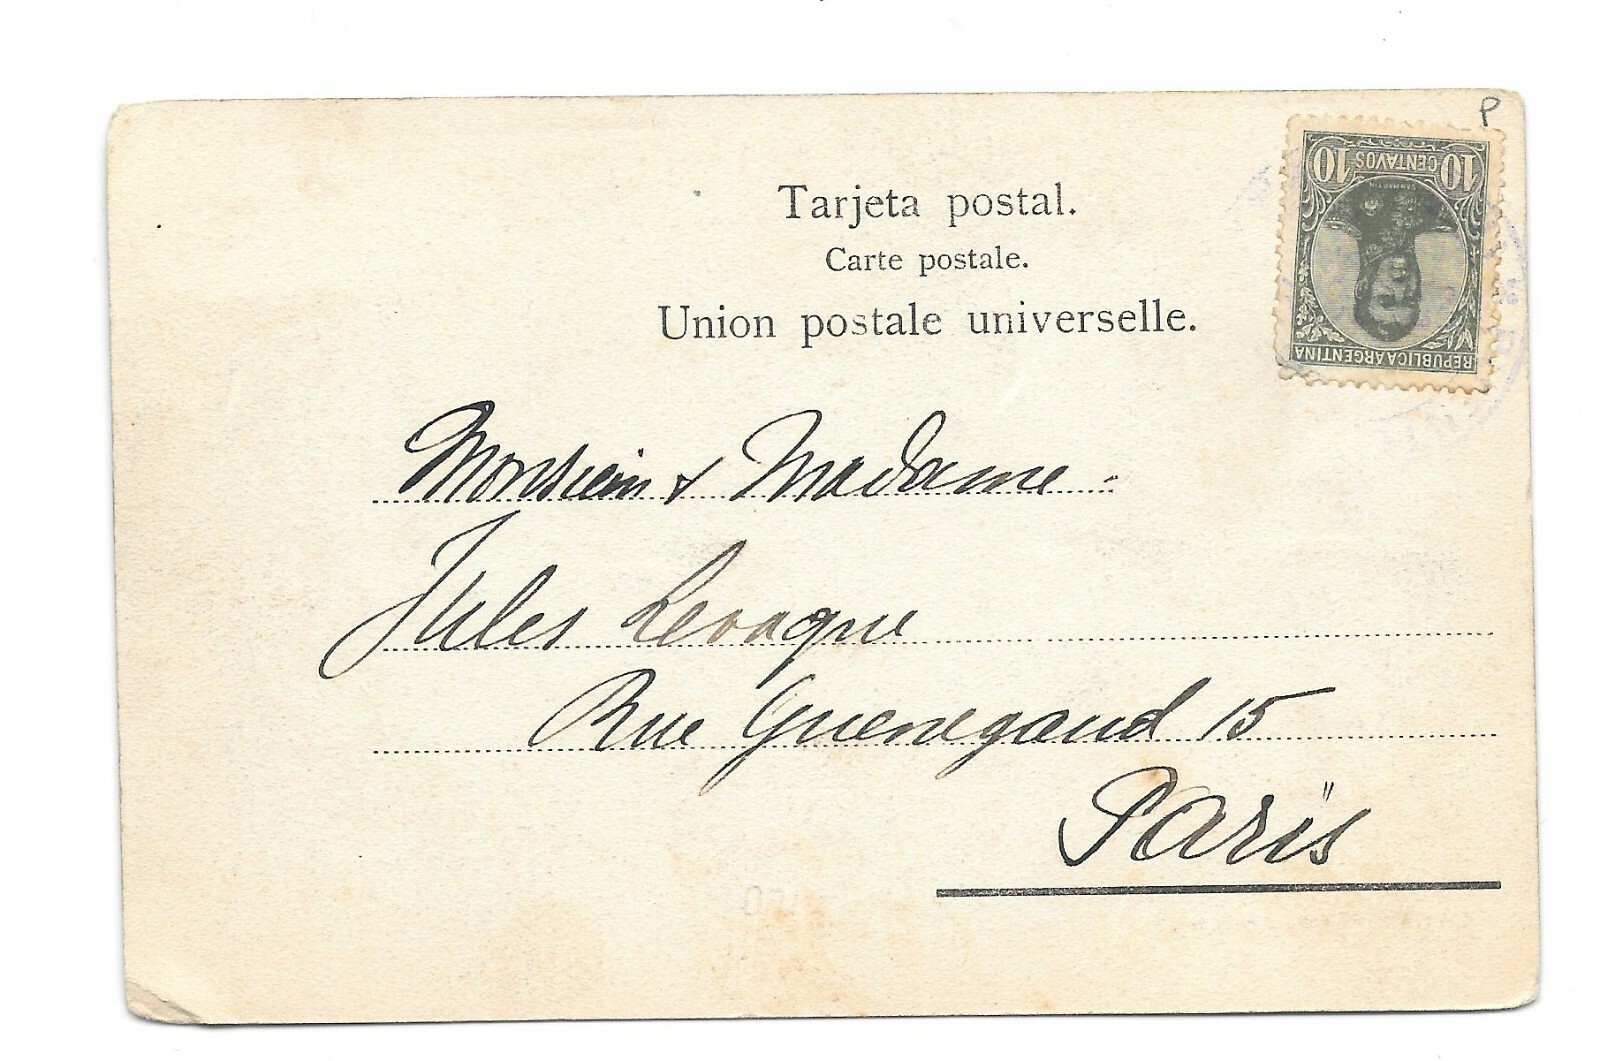 P
10 CENTAVOS 10
SAN MARTIN
REPUBLICA ARGENTINA
Tarjeta postal.
Carte postale.
Union postale universelle.
Monsieur & Madame
Jules Levaque
Rue Guenegaud 15
Paris